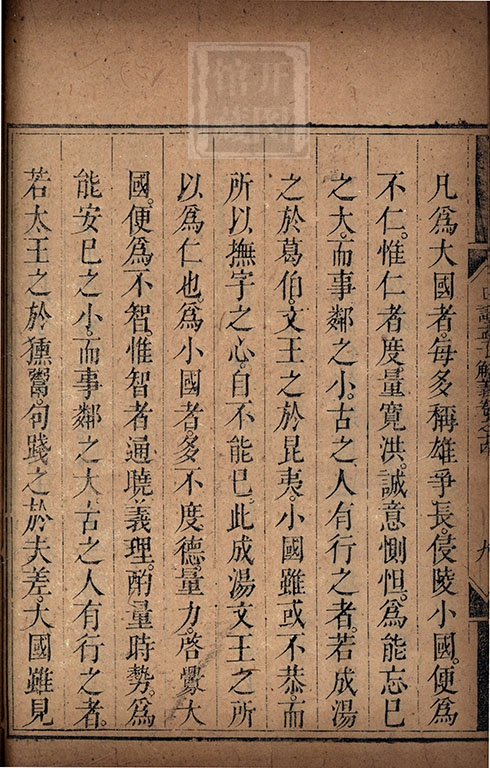 凡爲大國者。每多稱雄爭長。侵陵小國。便爲
不仁。惟仁者度量寬洪。誠意惻怛。爲能忘己
之大。而事鄰之小。古之人有行之者。若成湯
之於葛伯。文王之於昆夷。小國雖或不恭。而
所以撫字之心。自不能已。此成湯文王之所
以爲仁也。爲小國者。多不度德量力。啓釁大
國。便爲不智。惟智者通曉義理。酌量時勢。爲
能安己之小。而事鄰之大。古之人有行之者。
若太王之於獯鬻。句踐之於夫差。大國雖見